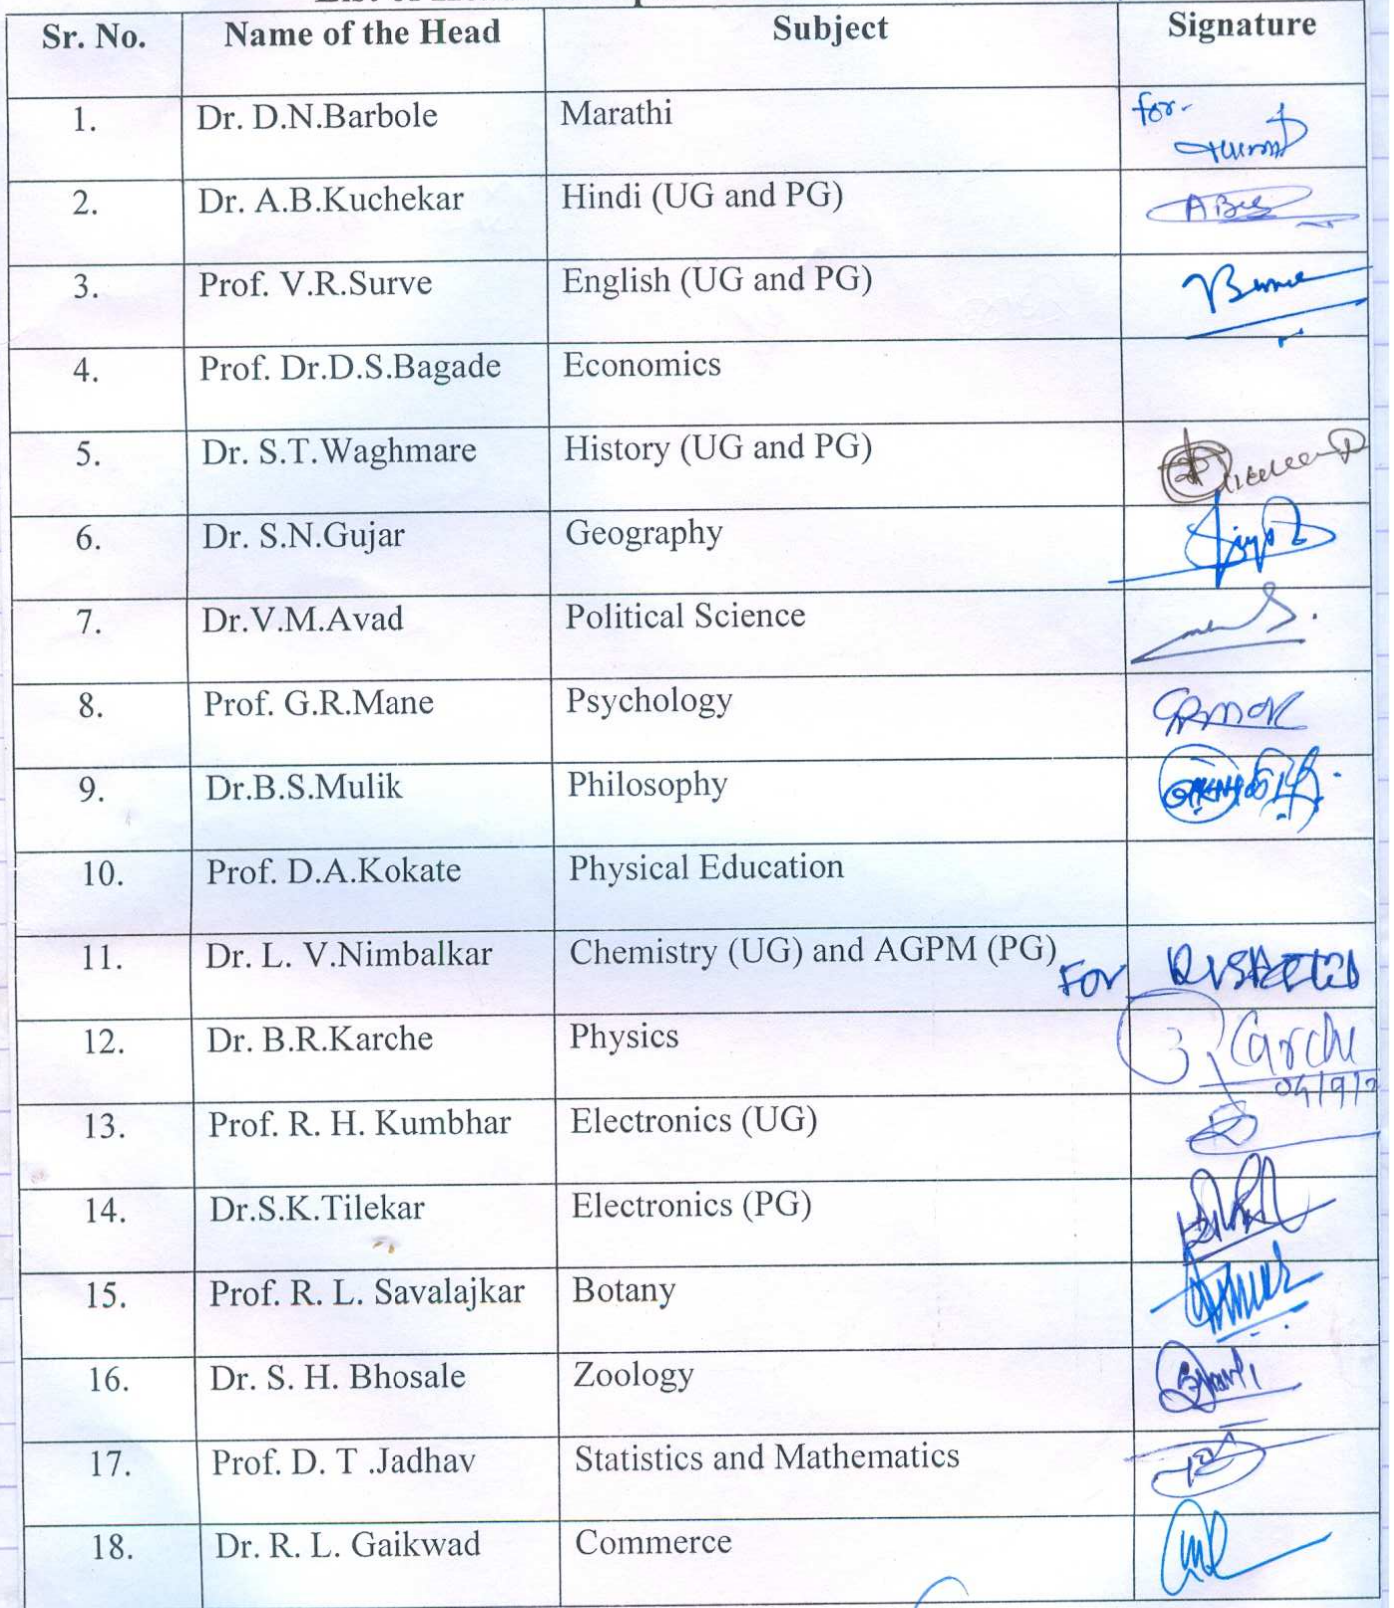 Sr. No. Name of the Head Subject Signature
1. Dr. D.N.Barbole Marathi for-
2. Dr. A.B.Kuchekar Hindi (UG and PG)
3. Prof. V.R.Surve English (UG and PG)
4. Prof. Dr.D.S.Bagade Economics
5. Dr. S.T.Waghmare History (UG and PG)
6. Dr. S.N.Gujar Geography
7. Dr.V.M.Avad Political Science
8. Prof. G.R.Mane Psychology
9. Dr.B.S.Mulik Philosophy
10. Prof. D.A.Kokate Physical Education
11. Dr. L. V.Nimbalkar Chemistry (UG) and AGPM (PG) FOR
12. Dr. B.R.Karche Physics
13. Prof. R. H. Kumbhar Electronics (UG)
14. Dr.S.K.Tilekar Electronics (PG)
15. Prof. R. L. Savalajkar Botany
16. Dr. S. H. Bhosale Zoology
17. Prof. D. T .Jadhav Statistics and Mathematics
18. Dr. R. L. Gaikwad Commerce